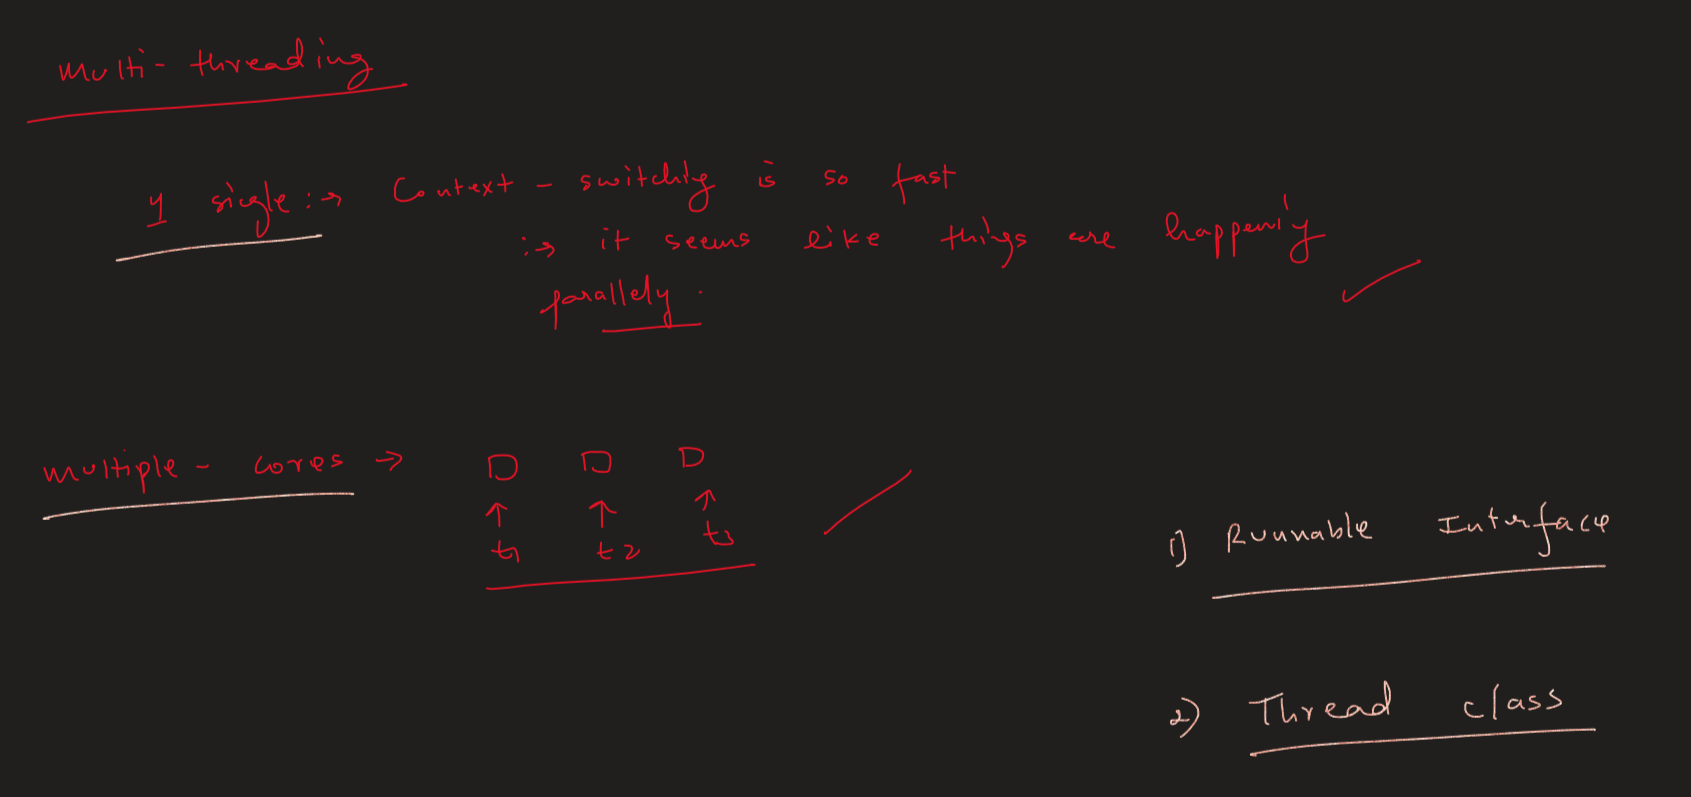 Multi-threading
single :→ Context-switching is so fast
:→ it seems like things are happening
parallely.
multiple-cores →
t1 t2 t3
1) Runnable Interface
2) Thread class